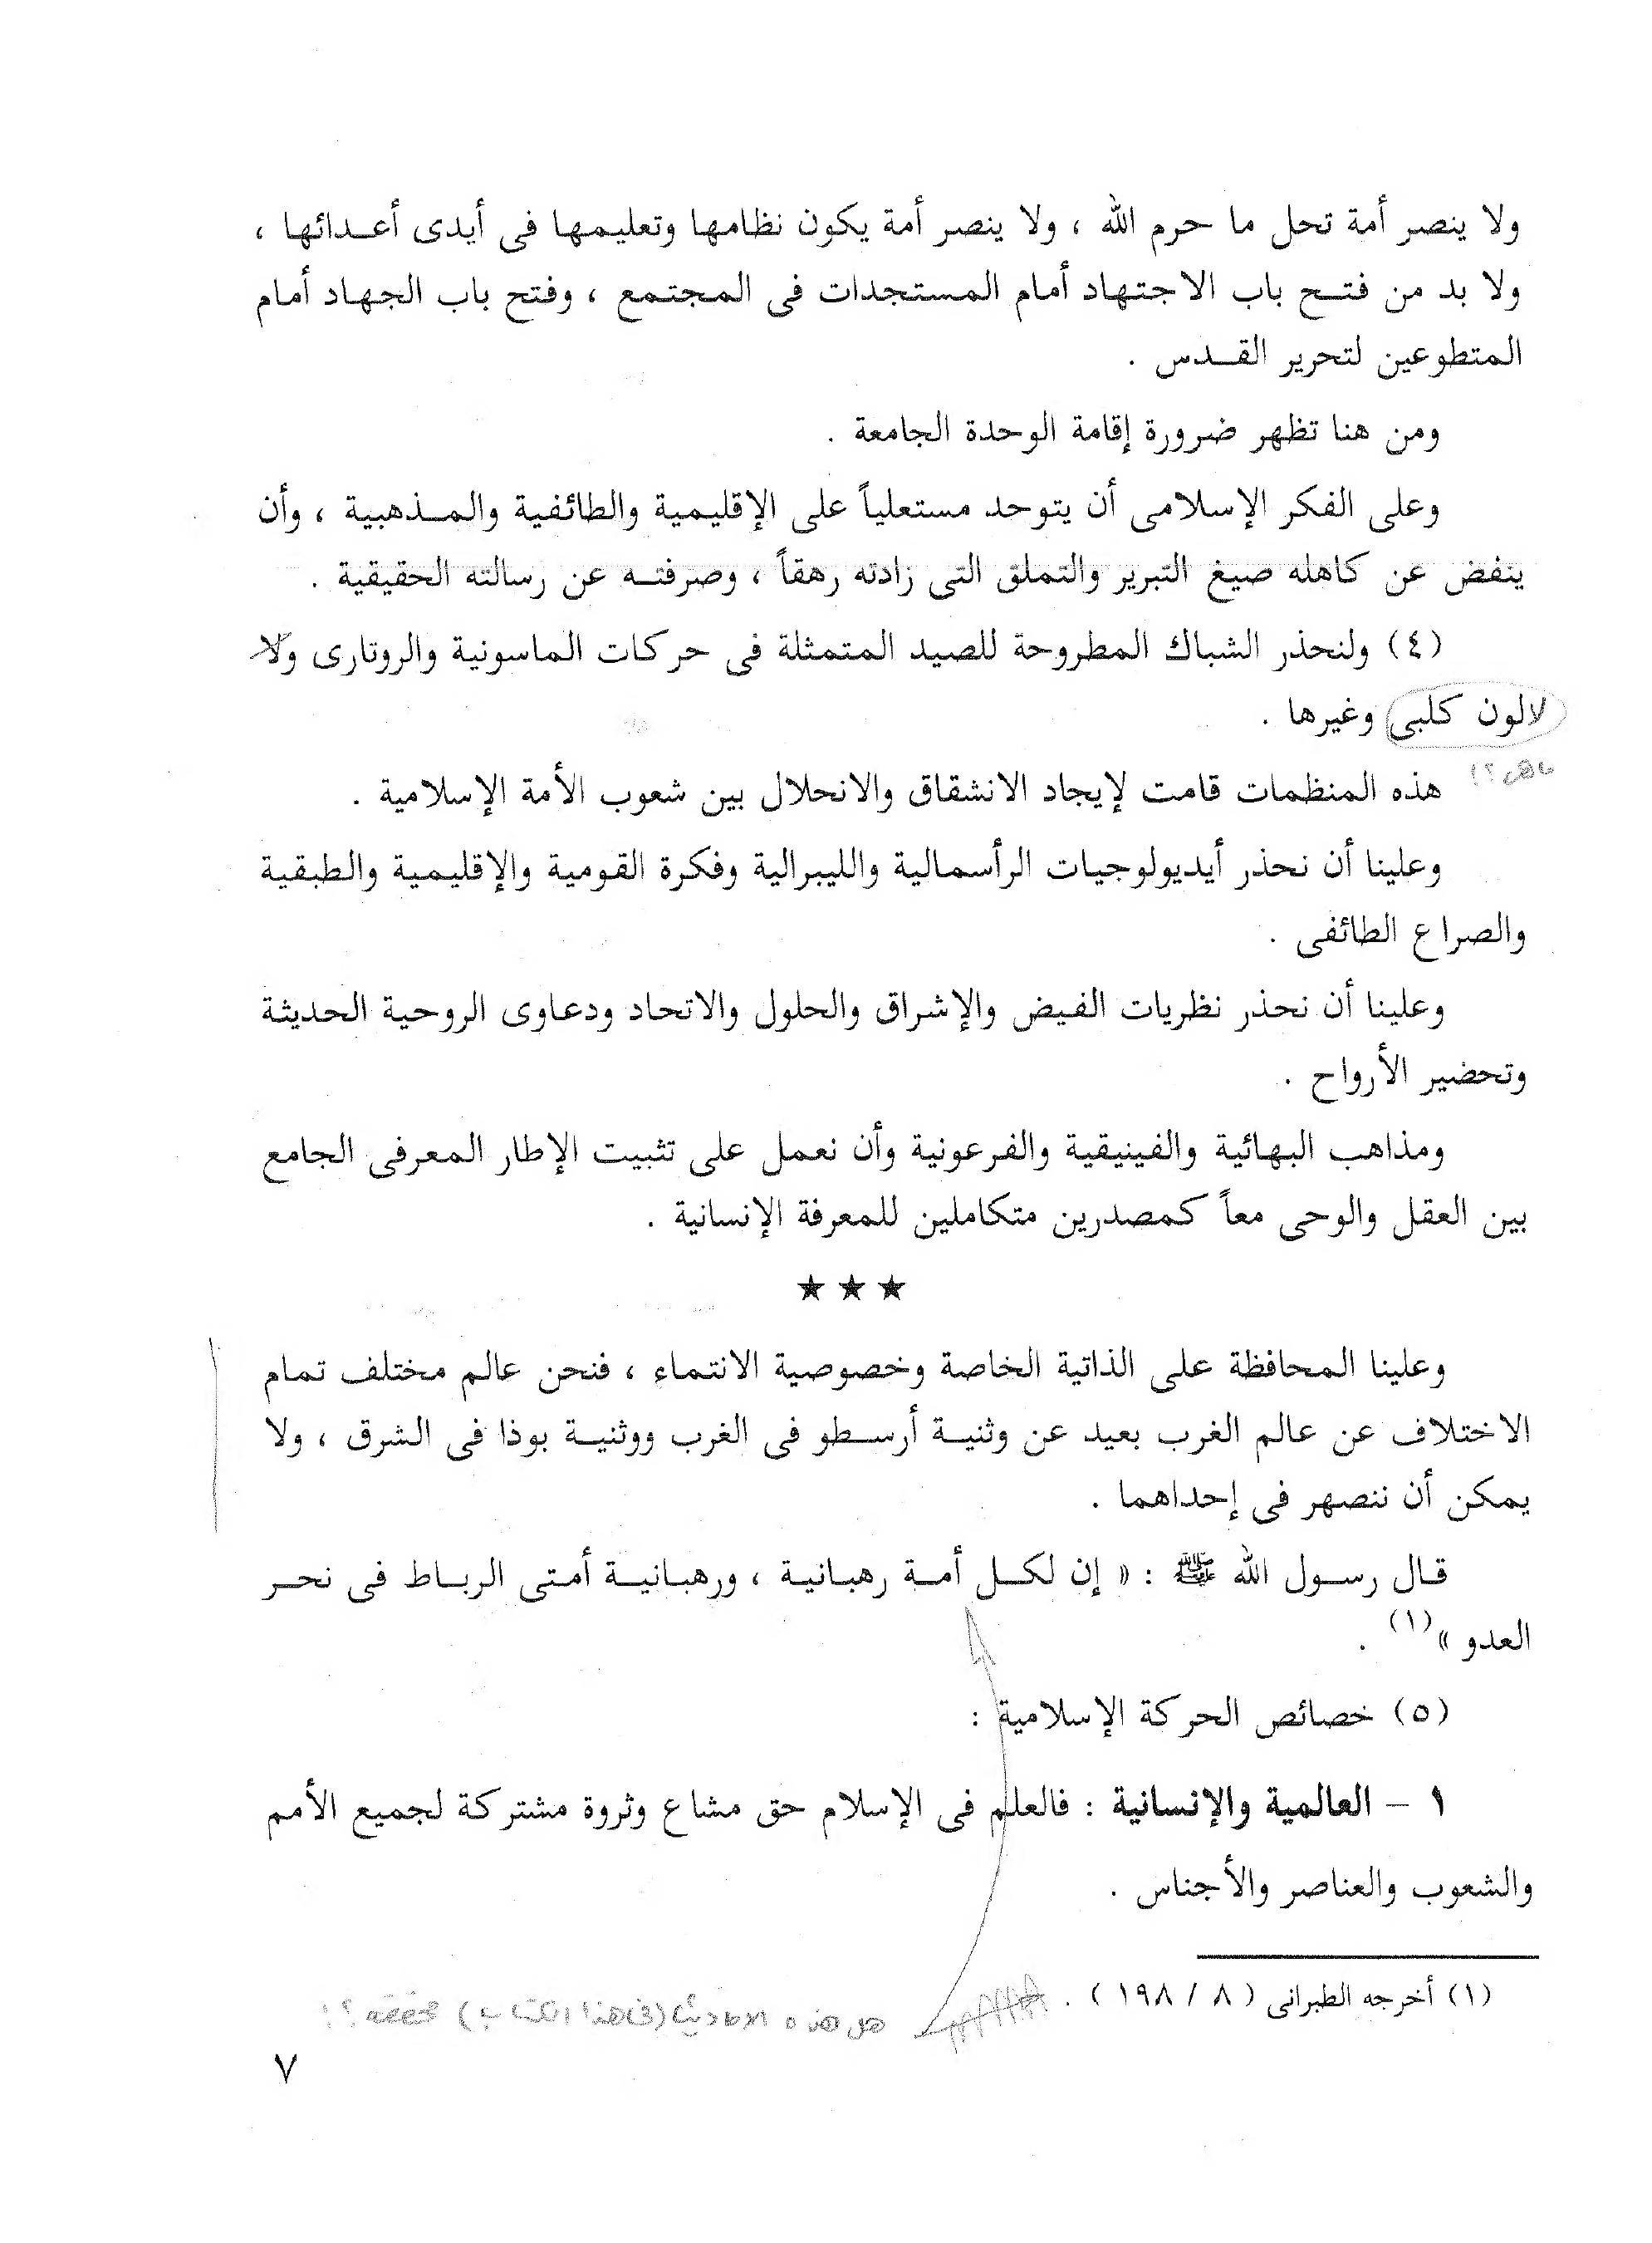 ولا ينصر أمة تحل ما حرم الله ، ولا ينصر أمة يكون نظامها وتعليمها فى أيدى أعدائها ،
ولا بد من فتح باب الاجتهاد أمام المستجدات فى المجتمع ، وفتح باب الجهاد أمام
المتطوعين لتحرير القدس .
ومن هنا تظهر ضرورة إقامة الوحدة الجامعة .
وعلى الفكر الإسلامى أن يتوحد مستعلياً على الإقليمية والطائفية والمذهبية ، وأن
ينفض عن كاهله صيغ التبرير والتملق التى زادته رهقاً ، وصرفته عن رسالته الحقيقية .
(٤) ولنحذر الشباك المطروحة للصيد المتمثلة فى حركات الماسونية والروتارى ولا
لالون كلبى وغيرها .
ماهى ؟!
هذه المنظمات قامت لإيجاد الانشقاق والانحلال بين شعوب الأمة الإسلامية .
وعلينا أن نحذر أيديولوجيات الرأسمالية والليبرالية وفكرة القومية والإقليمية والطبقية
والصراع الطائفى .
وعلينا أن نحذر نظريات الفيض والإشراق والحلول والاتحاد ودعاوى الروحية الحديثة
وتحضير الأرواح .
ومذاهب البهائية والفينيقية والفرعونية وأن نعمل على تثبيت الإطار المعرفى الجامع
بين العقل والوحى معاً كمصدرين متكاملين للمعرفة الإنسانية .
★ ★ ★
وعلينا المحافظة على الذاتية الخاصة وخصوصية الانتماء ، فنحن عالم مختلف تمام
الاختلاف عن عالم الغرب بعيد عن وثنية أرسطو فى الغرب ووثنية بوذا فى الشرق ، ولا
يمكن أن ننصهر فى إحداهما .
قال رسول الله ﷺ : « إن لكل أمة رهبانية ، ورهبانية أمتى الرباط فى نحر
العدو »(١) .
(٥) خصائص الحركة الإسلامية :
١ – العالمية والإنسانية : فالعلم فى الإسلام حق مشاع وثروة مشتركة لجميع الأمم
والشعوب والعناصر والأجناس .
(١) أخرجه الطبرانى ( ٨ / ١٩٨ ) .
هل هذه الاحاديث (فى هذا الكتاب) محققه ؟!
٧